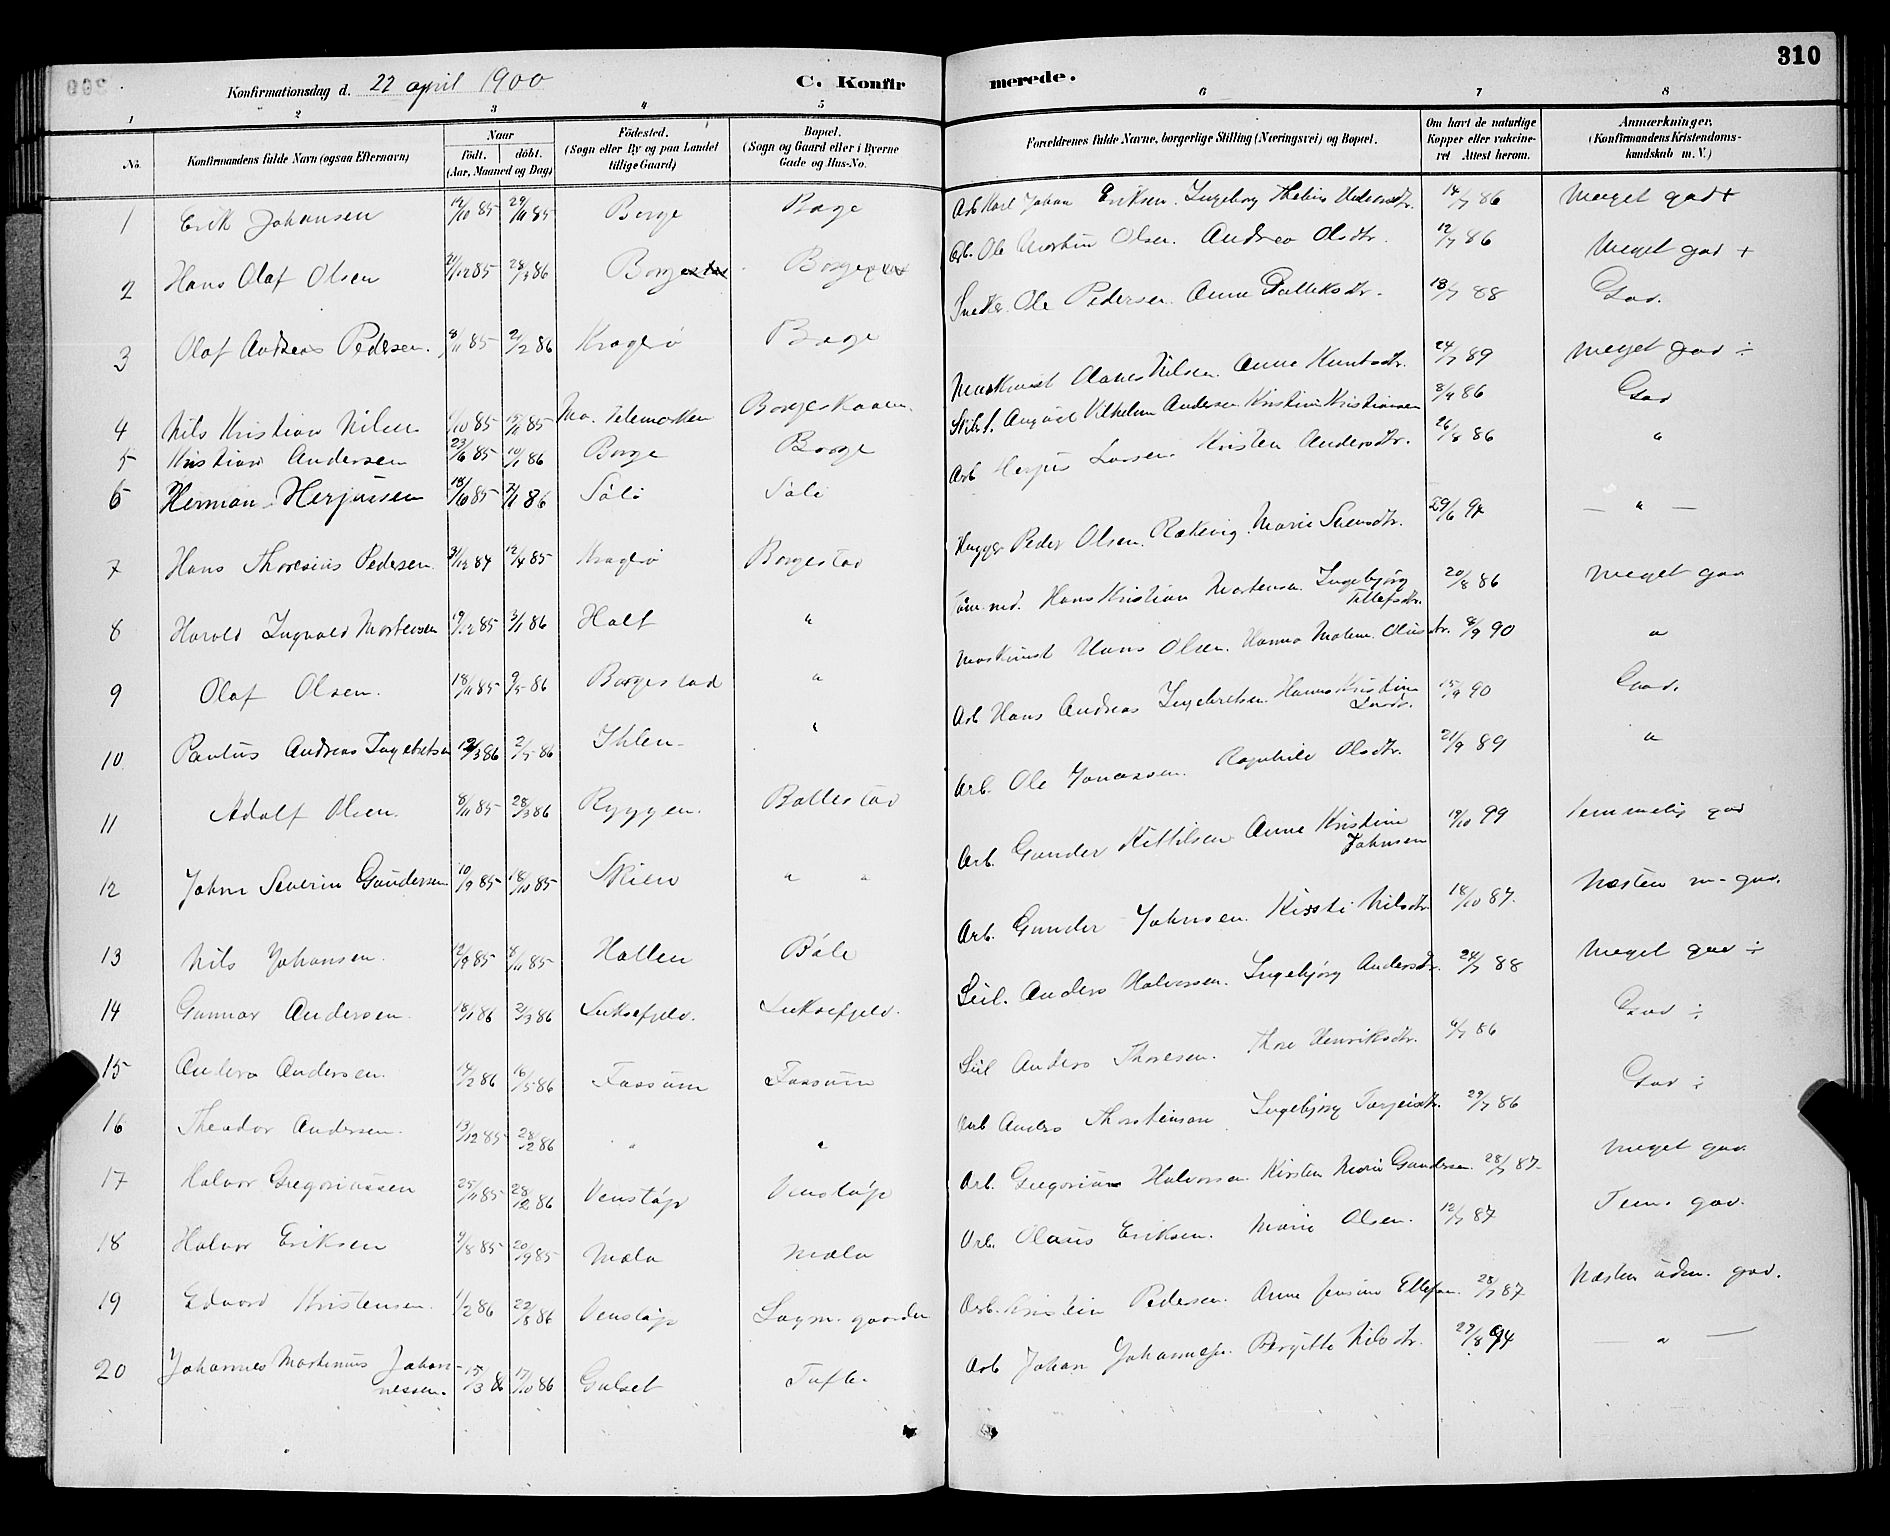 310
Konfirmationsdag d. 22 april 1900
C. Konfirmerede.
1 2 3 4 5 6 7 8
No.
Konfirmandens fulde Navn (ogsaa Efternavn)
Naar
födt. döbt.
(Aar, Maaned og Dag)
Födested.
(Sogn eller By og paa Landet
tillige Gaard)
Bopæl.
(Sogn og Gaard eller i Byerne
Gade og Hus-No.
Forældrenes fulde Navne, borgerlige Stilling (Næringsvei) og Bopæl.
Om havt de naturlige
Kopper eller vakcine-
ret Attest herom.
Anmærkninger.
(Konfirmandens Kristendoms-
kundskab m. V.)
1 Erik Johansen 19/10 85 29/11 85 Borge Borge Arb Karl Johan Eriksen. Ingeborg 14/7 86 Meget god +
2 Hans Olaf Olsen 21/12 85 28/3 86 Borgestad Borgestad Arb. Ole Martin Olsen. Andrea Olsdtr. 12/7 86 Meget god +
3 Olaf Andreas Pedersen. 8/11 85 21/2 86 Kragerö Borge Snedker Ole Pedersen Anne 18/7 88 God.
4 Nils Kristian Nilsen /10 85 15/11 85 Borgeskaaen. Maskinist Nilsen. Anne Knutsdtr. 24/7 89 Meget god ÷
5 Kristian Andersen 23/6 85 10/1 86 Borge Borge August Vilhelm Andersen Kristine Kristiansen 3/9 86 God
6 Herman Herjussen 18/10 85 2/11 86 Böle Böle Arb Herjus Larsen. Kirsten Andersdtr. 26/8 86 "
7 Hans Thoresius Pedersen. 31/12 84 12/4 85 Kragerö Borgestad Hugger Peder Olsen. Rakevig. Marie Svensdtr. 29/6 92 — " —
8 Harald Ingvald Mortensen 19/12 85 3/1 86 Holt " Töm. md. Hans Kristian Mortensen. Ingebjörg
Tellefsdtr. 20/8 86 Meget god
9 Olaf Olsen. 18/11 85 9/5 86 Borgestad " Maskinist Hans Olsen. Hanna 8/9 90 "
10 Paulus Andreas Ingebretsen 12/3 86 2/5 86 Ihlen " Arb Hans Andreas Ingebretsen. Hanne Kristine 15/9 90 God.
11 Adolf Olsen. 8/11 85 28/3 86 Ryggen. Bollestad Arb. Ole Jonassen. Ragnhild Olsdtr. 21/9 89 "
12 Johan Severin Gundersen 10/9 85 18/10 85 Skien " " Arb. Gunder Kittilsen Anne Kristine
Johnsen 19/10 99 temmelig god
13 Nils Johansen. 12/9 85 8/11 85 Hollen Böle Arb. Gunder Johnsen. Kirsti Nilsdtr 18/10 87. Næsten m- god.
14 Gunnar Andersen. 18/1 86 21/3 86 Luksefjeld. Luksefjeld. Anders Halvorsen. Ingebjörg Andersdtr. 24/7 88 Meget god ÷
15 Anders Andersen. 14/2 86 16/5 86 Fossum Fossum Anders Thoresen. Thore Henriksdtr. 6/7 86 God ÷
16 Theodor Andersen. 13/12 85 28/2 86 " " Arb Anders Thorstensen Ingebjörg Torgeisdtr. 29/7 86 God ÷
17 Halvor Gregoriussen 25/11 85 28/12 86 Venstöp Venstöp Arb. Gregorius Halvorsen Kirsten Marie Gundersen. 28/7 87 meget god.
18 Halvor Eriksen 9/8 85 20/9 85 Mæla Mæla Arb. Olaus Eriksen. Marie Olsen. 12/7 87 Tem. god.
19 Edvard Kristensen. 1/2 86 22/8 86 Venstöp Lagm. gaarden Arb. Kristen Pedersen. Anne Jensine Ellefsen. 28/7 87 Næsten udm. god.
20 Johannes Martinius Johan-
nessen. 15/3 86 17/10 86 Gulset Tufte. Arb Johan Johannessen. Birgitte Nilsdtr. 27/8 94 — " —